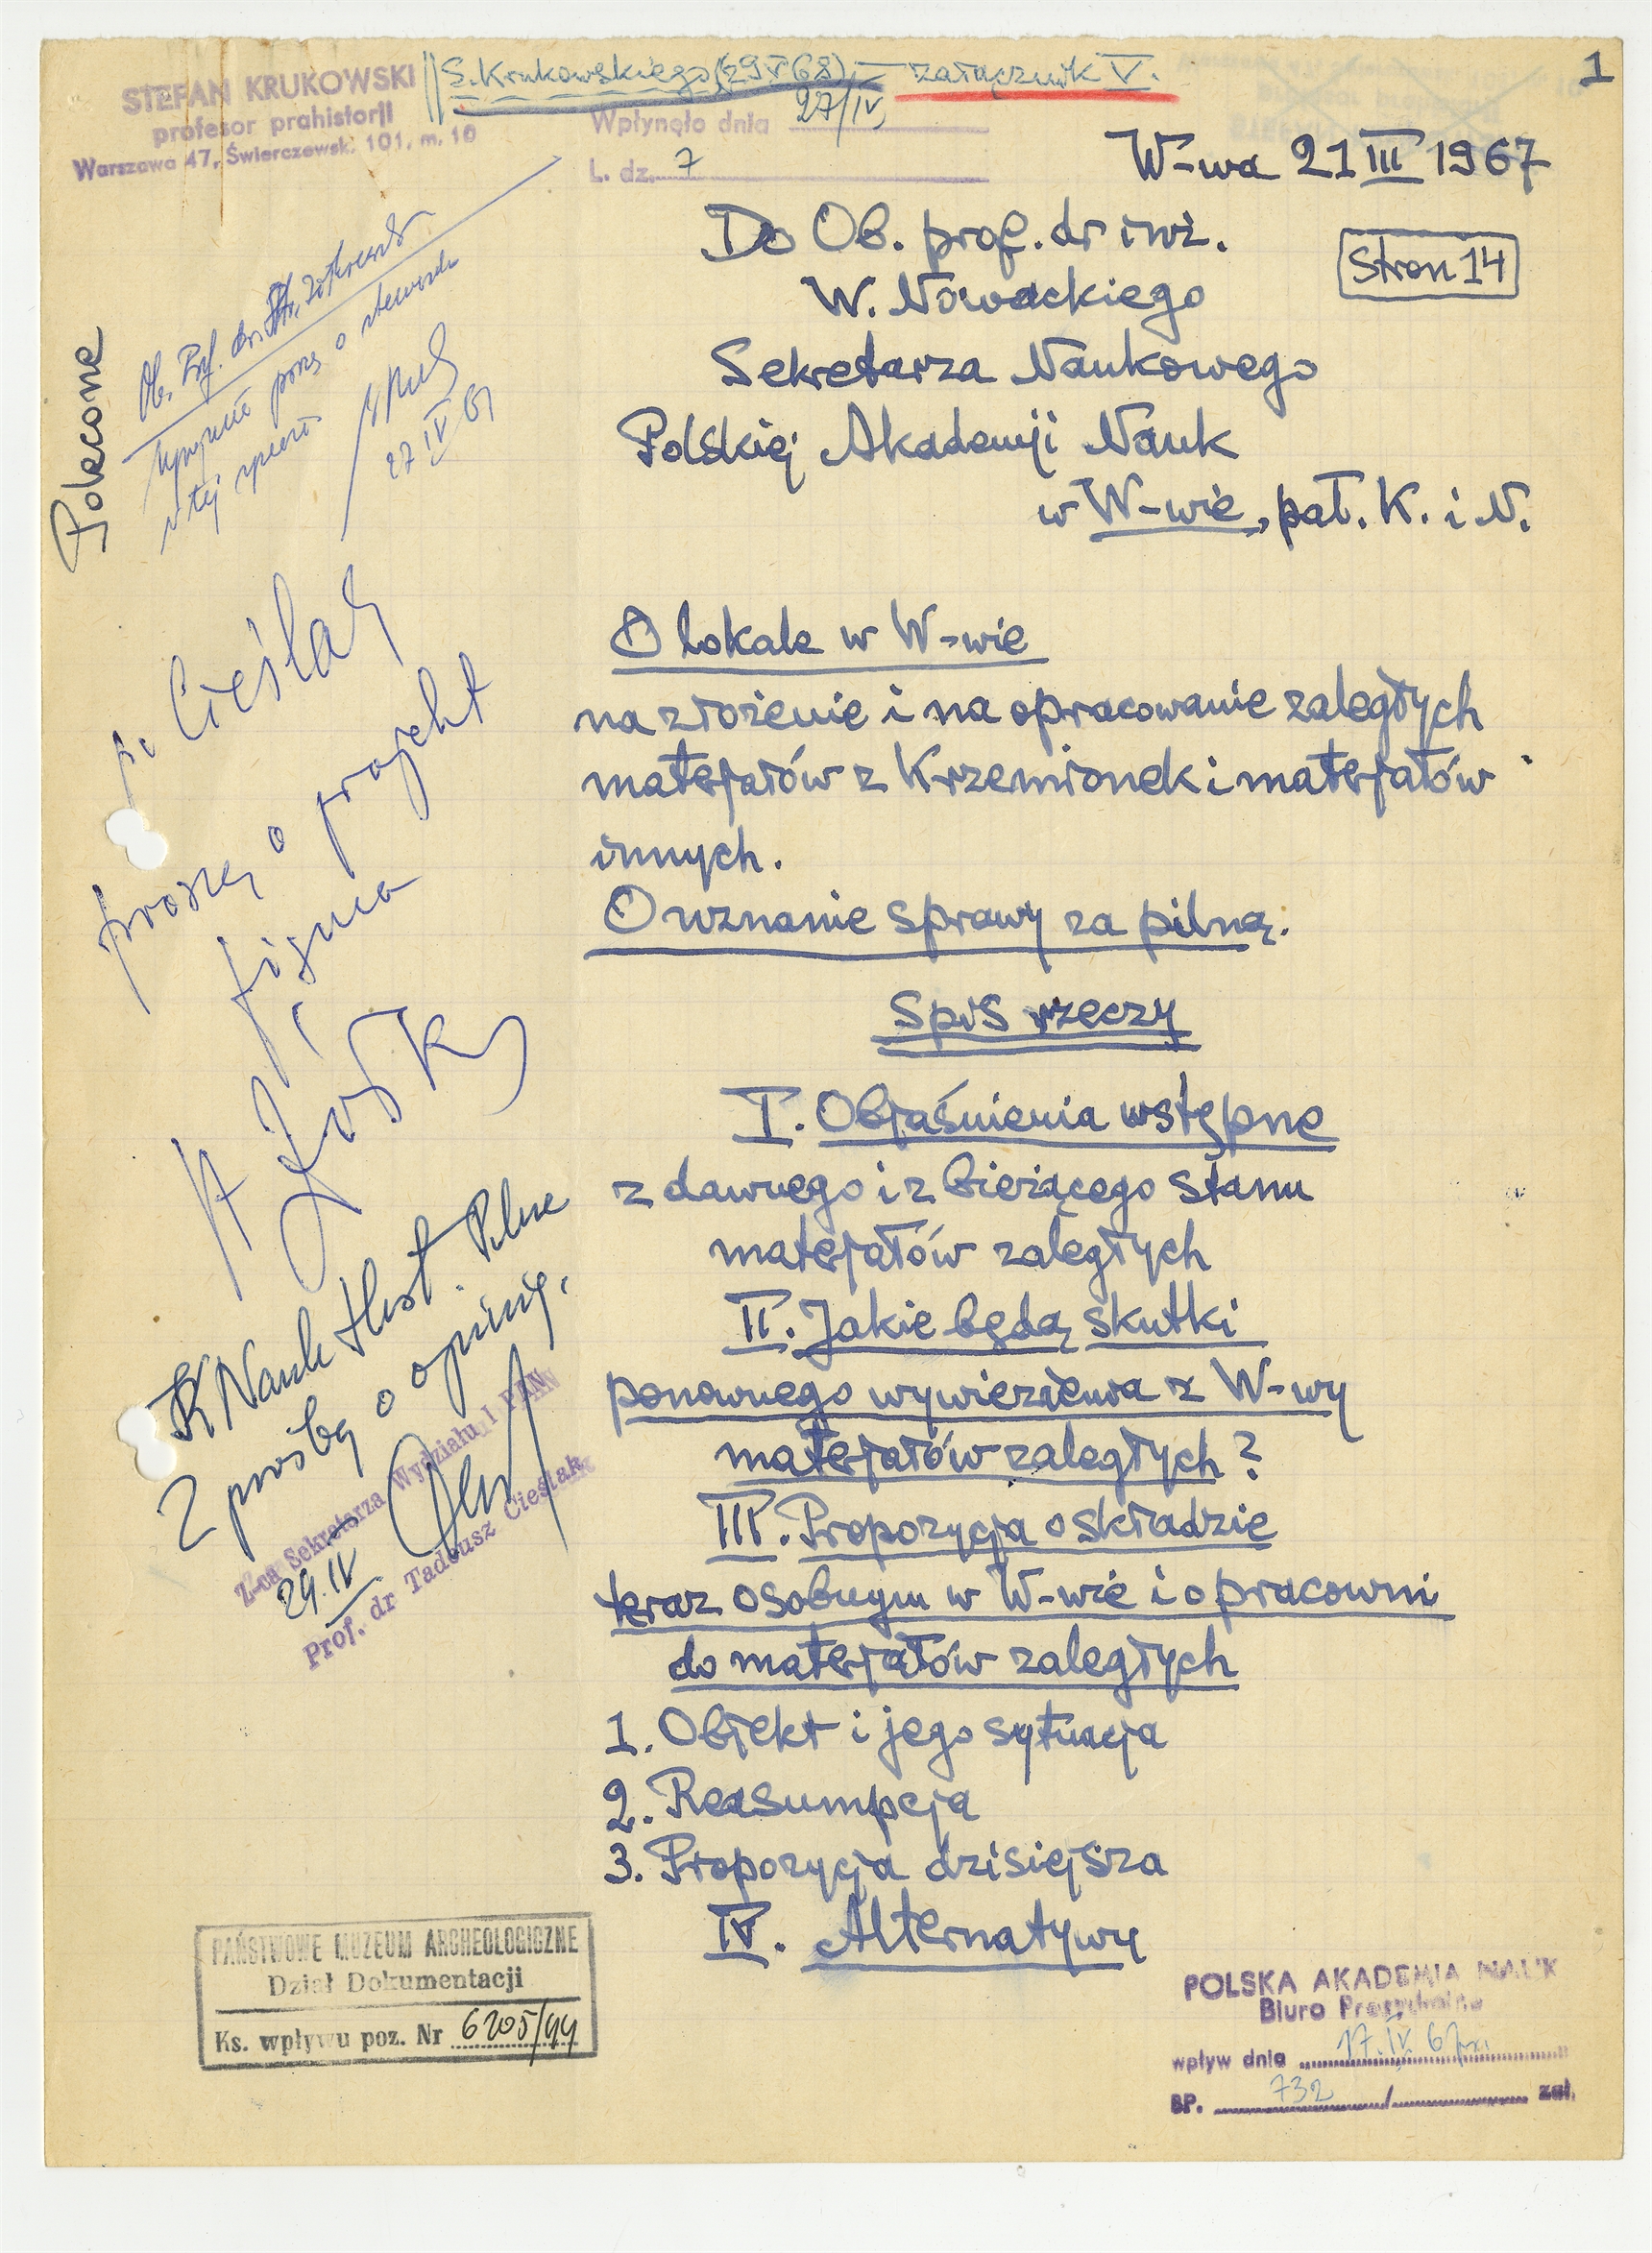 1
S. Krukowskiego (29 V 68) – załącznik V.
STEFAN KRUKOWSKI
profesor prahistorji
Warszawa 47, Świerczewsk. 101, m. 10
Wpłynęło dnia 27/IV
L. dz. 7
W-wa 21 III 1967
Stron 14
Do Ob. prof. dr inż.
W. Nowackiego
Sekretarza Naukowego
Polskiej Akademji Nauk
w W-wie, pał. K. i N.
Polecone
Ob. Prof. dr
uprzejmie proszę o
w tej sprawie
27 IV 67
p. Cieślak
proszę o projekt
pisma
K Nauk Hist.
Z prośbą o opinię.
Z-ca Sekretarza Wydziału I PAN
29.IV
Prof. dr Tadeusz Cieślak
O lokale w W-wie
na złożenie i na opracowanie zaległych
materjałów z Krzemionek i materjałów
innych.
O uznanie sprawy za pilną.
Spis rzeczy
I. Objaśnienia wstępne
z dawnego i z bieżącego stanu
materjałów zaległych
II. Jakie będą skutki
ponownego wywiezienia z W-wy
materjałów zaległych?
III. Propozycja o składzie
teraz osobnym w W-wie i o pracowni
do materjałów zaległych
1. Objekt i jego sytuacja
2. Reasumpcja
3. Propozycja dzisiejsza
IV. Alternatywy
PAŃSTWOWE MUZEUM ARCHEOLOGICZNE
Dział Dokumentacji
Ks. wpływu poz. Nr 6205/44
POLSKA AKADEMIA NAUK
Biuro Prezydialne
wpływ dnia 17.IV.67
BP. 732 / zał.